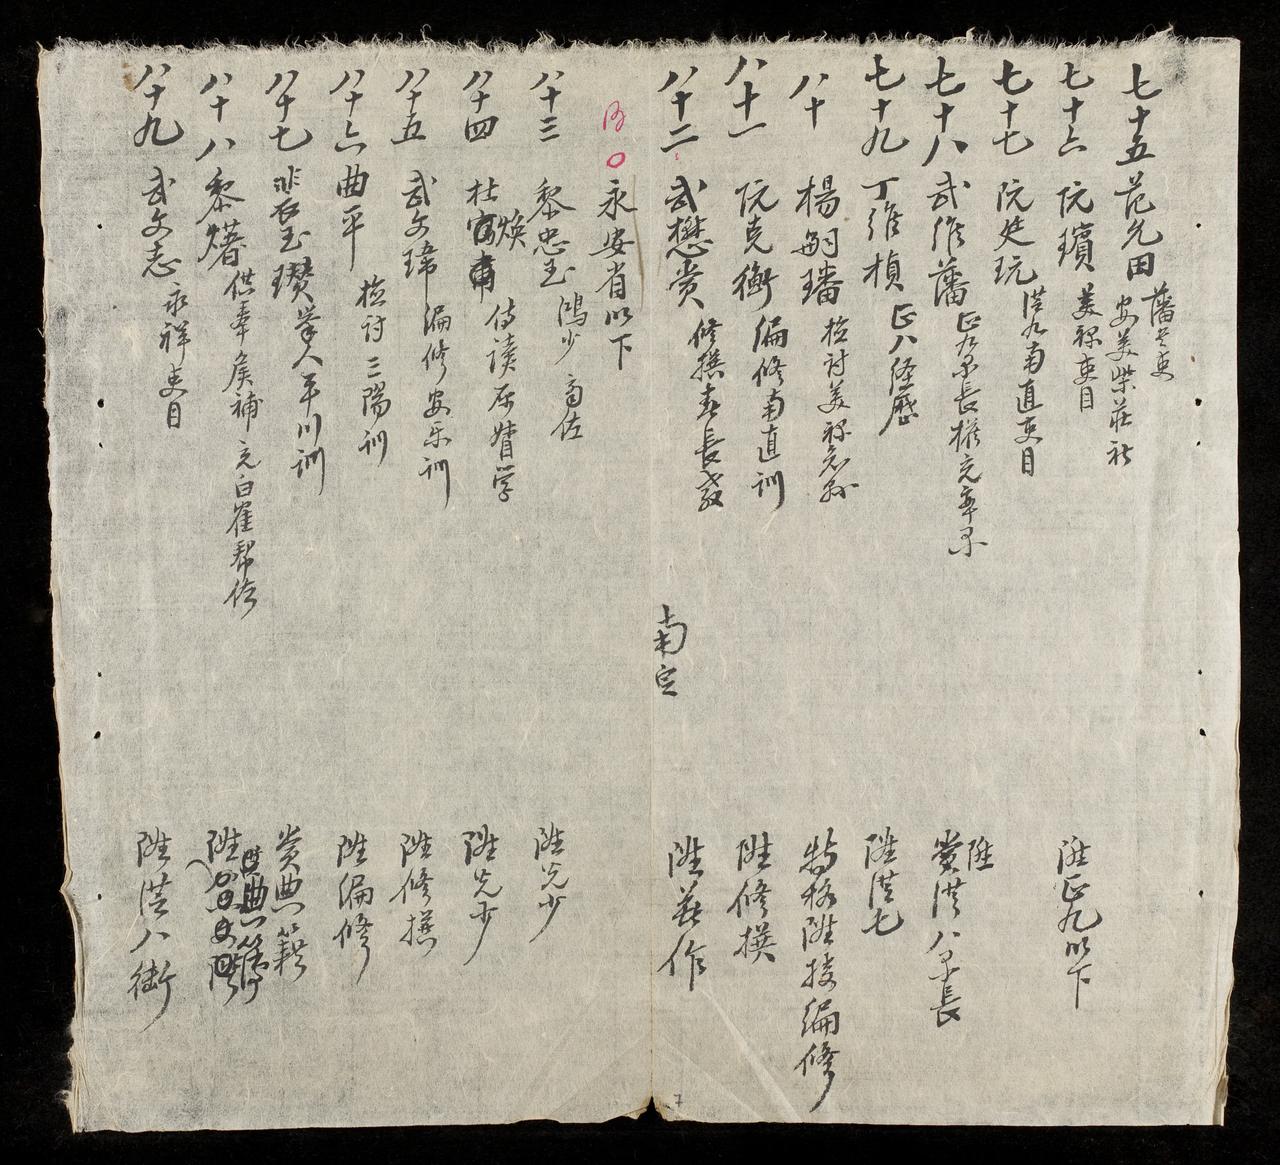 七十五 范允田 藩吏 安美柴莊社
七十六 阮璸 美祿吏目 陞正九以下
七十七 阮廷玩 從九南直吏目
七十八 武維藩 正九隊長權充率隊 陞賞從八隊長
七十九 丁維楨 正八經歷 陞從七
八十 楊嗣璠 檢討美祿 特格陞授編修
八十一 阮克衡 編修南直訓 陞修撰
八十二 武懋賞 修撰春長教 南定 陞著作
永安省以下
八十三 黎忠玉 鴻少 陞光少
八十四 杜煥 侍讀 督学 陞光少
八十五 武文瑋 編修安乐訓 陞修撰
八十六 曲平 檢討三陽訓 陞編修
八十七 裴玉瓚 举人平川訓 賞典籍
八十八 黎㷮 供奉候補充白雀幇佐 陞典簿
八十九 武文志 永祥吏目 陞從八銜
7